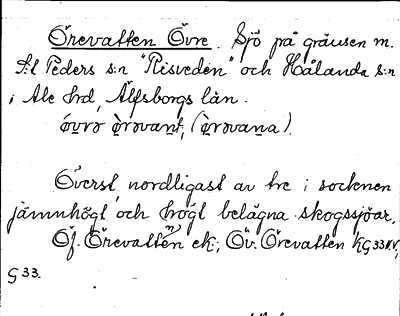 Örevatten Övre. Sjö på gränsen m.
S:t Peders s:n "Risveden" och Hålanda s:n
i Ale hrd, Älfsborgs län.
Överst, nordligast av tre i socknen
jämnhögt och högt belägna skogssjöar.
Öf. Örevattnen ek; Öv. Örevatten KG33N.V,
G33.